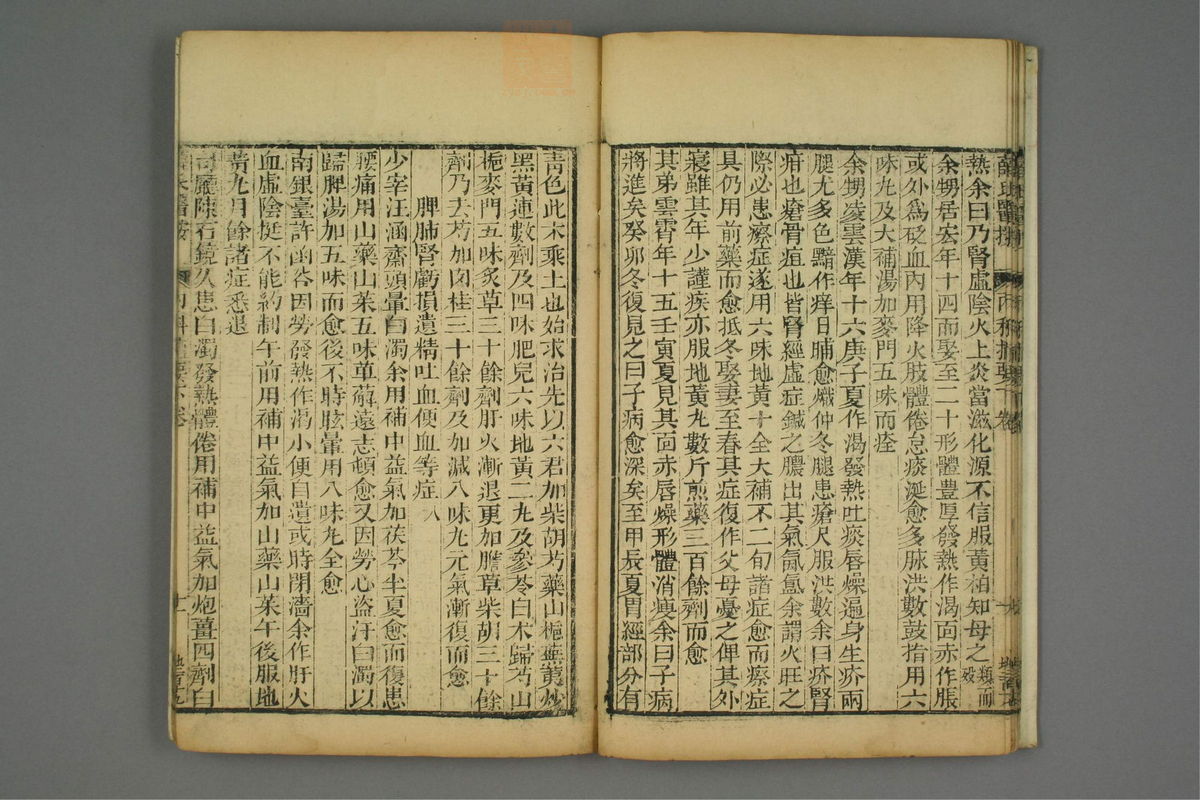 薛氏醫按 內科摘要下卷
熱余曰乃腎虛陰火上炎當滋化源不信服黃柏知母之類而歿
余甥居宏年十四而娶至二十形體豊厚發熱作渴面赤作脹
或外為砭血內用降火肢體倦怠痰涎愈多脉洪數鼓指用六
味丸及大補湯加麥門五味而痊
余甥凌雲漢年十六庚子夏作渴發熱吐痰唇燥遍身生疥兩
腿尤多色黯作痒日晡愈熾仲冬腿患瘡尺脉洪數余曰疥腎
疳也瘡骨疽也皆腎經虛症鍼之膿出其氣氤氳余謂火旺之
際必患瘵症遂用六味地黃十全大補不二旬諸症愈而瘵症
具仍用前藥而愈抵冬娶妻至春其症復作父母憂之俾其外
寢雖其年少謹疾亦服地黃丸數斤煎藥三百餘劑而愈
其弟雲霄年十五壬寅夏見其面赤唇燥形體消瘦余曰子病
將進矣癸卯冬復見之曰子病愈深矣至甲辰夏胃經部分有
青色此木乘土也始求治先以六君加柴胡芍藥山梔蕪荑炒
黑黃連數劑及四味肥兒六味地黃二丸及參苓白术歸芍山
梔麥門五味炙草三十餘劑肝火漸退更加膽草柴胡三十餘
劑乃去芍加肉桂三十餘劑及加減八味丸元氣漸復而愈
脾肺腎虧損遺精吐血便血等症 八
少宰汪涵齋頭暈白濁余用補中益氣加茯苓半夏愈而復患
腰痛用山藥山茱五味萆薢遠志頓愈又因勞心盜汗白濁以
歸脾湯加五味而愈後不時眩暈用八味丸全愈
南銀臺許函谷因勞發熱作渴小便自遺或時閉濇余作肝火
血虛陰挺不能約制午前用補中益氣加山藥山茱午後服地
黃丸月餘諸症悉退
司廳陳石鏡久患白濁發熱體倦用補中益氣加炮薑四劑白
內科摘要下卷 十一